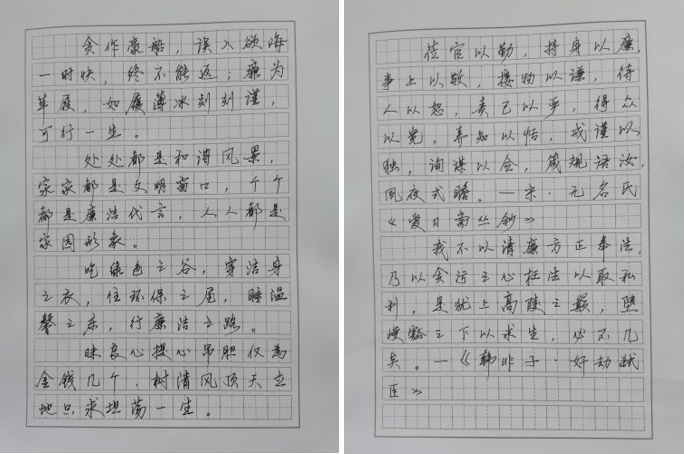 贪作废船，误入欲海
一时快，终不能返；廉为
草履，如履薄冰刻刻谨，
可行一生。
处处都是和谐风景，
家家都是文明窗口，个个
都是廉洁代言，人人都是
家园形象。
吃绿色之谷，穿洁身
之衣，住环保之屋，睡温
馨之床，行廉洁之路。
昧良心提心吊胆仅为
金钱几个，树清风顶天立
地只求坦荡一生。
莅官以勤，持身以廉，
事上以敬，接物以谦，待
人以恕，责己以严，得众
以宽，养知以恬，戒谨以
独，询谋以佥，箴规语汝，
夙夜式瞻。—宋·元名氏
《爱日斋丛钞》
我不以清廉方正奉法，
乃以贪污之心枉法以取私
利，是犹上高陵之巅，堕
峻谿之下以求生，必不几
矣。—《韩非子·奸劫弑
臣》